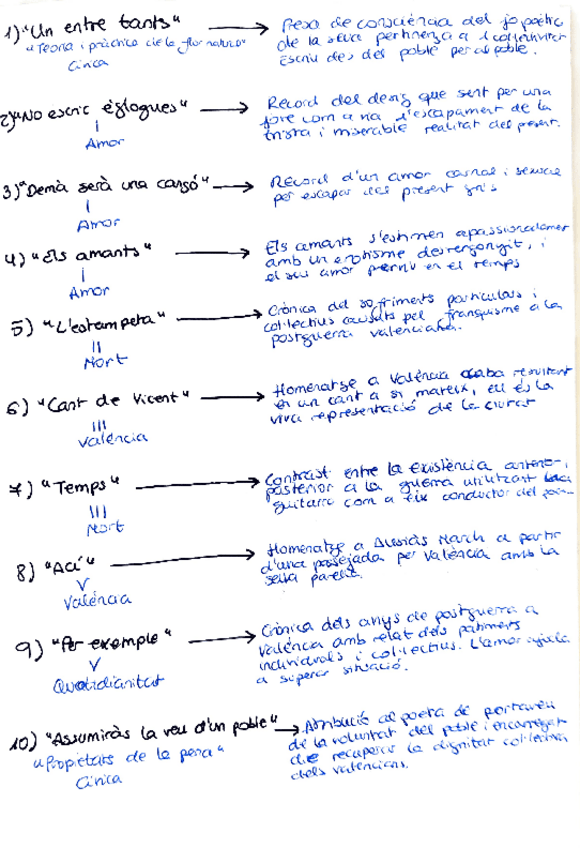 1) "Un entre tants" → Presa de consciència del jo poètic
"Teoria i pràctica de la flor natural" de la seva pertinença a
Cívica Escriu des del poble per al poble.
2) "No escric èglogues" → Record del desig que sent per una
jove com a una d'escapament de la
Amor trista i miserable realitat del present.
3) "Demà serà una cançó" → Record d'un amor carnal i sensual
per escapar del present gris
Amor
4) "Els amants" → Els amants s'estimen apassionadament
amb un erotisme desvergonyit, i
Amor el seu amor perviu en el temps
5) "L'estampeta" → Crònica del sofriments particulars i
col·lectius causats pel franquisme a la
Mort postguerra valenciana.
6) "Cant de Vicent" → Homenatge a València acaba resultant
en un cant a si mateix, ell és la
València viva representació de la ciutat
7) "Temps" → Contrast entre la existència anterior i
posterior a la guerra utilitzant
Mort guitarra com a fix conductor del
8) "Ací" → Homenatge a Ausiàs March a partir
d'una passejada per València amb la
València sella parella.
9) "Per exemple" → Crònica dels anys de postguerra a
València amb relat dels patiments
Quotidianitat individuals i col·lectius. L'amor ajuda
a superar situació.
10) "Assumiràs la veu d'un poble" → Atribució al poeta de portaveu
"Propietats de la pena" de la voluntat del poble i encarregat
Cívica de recuperar la dignitat col·lectiva
dels valencians.